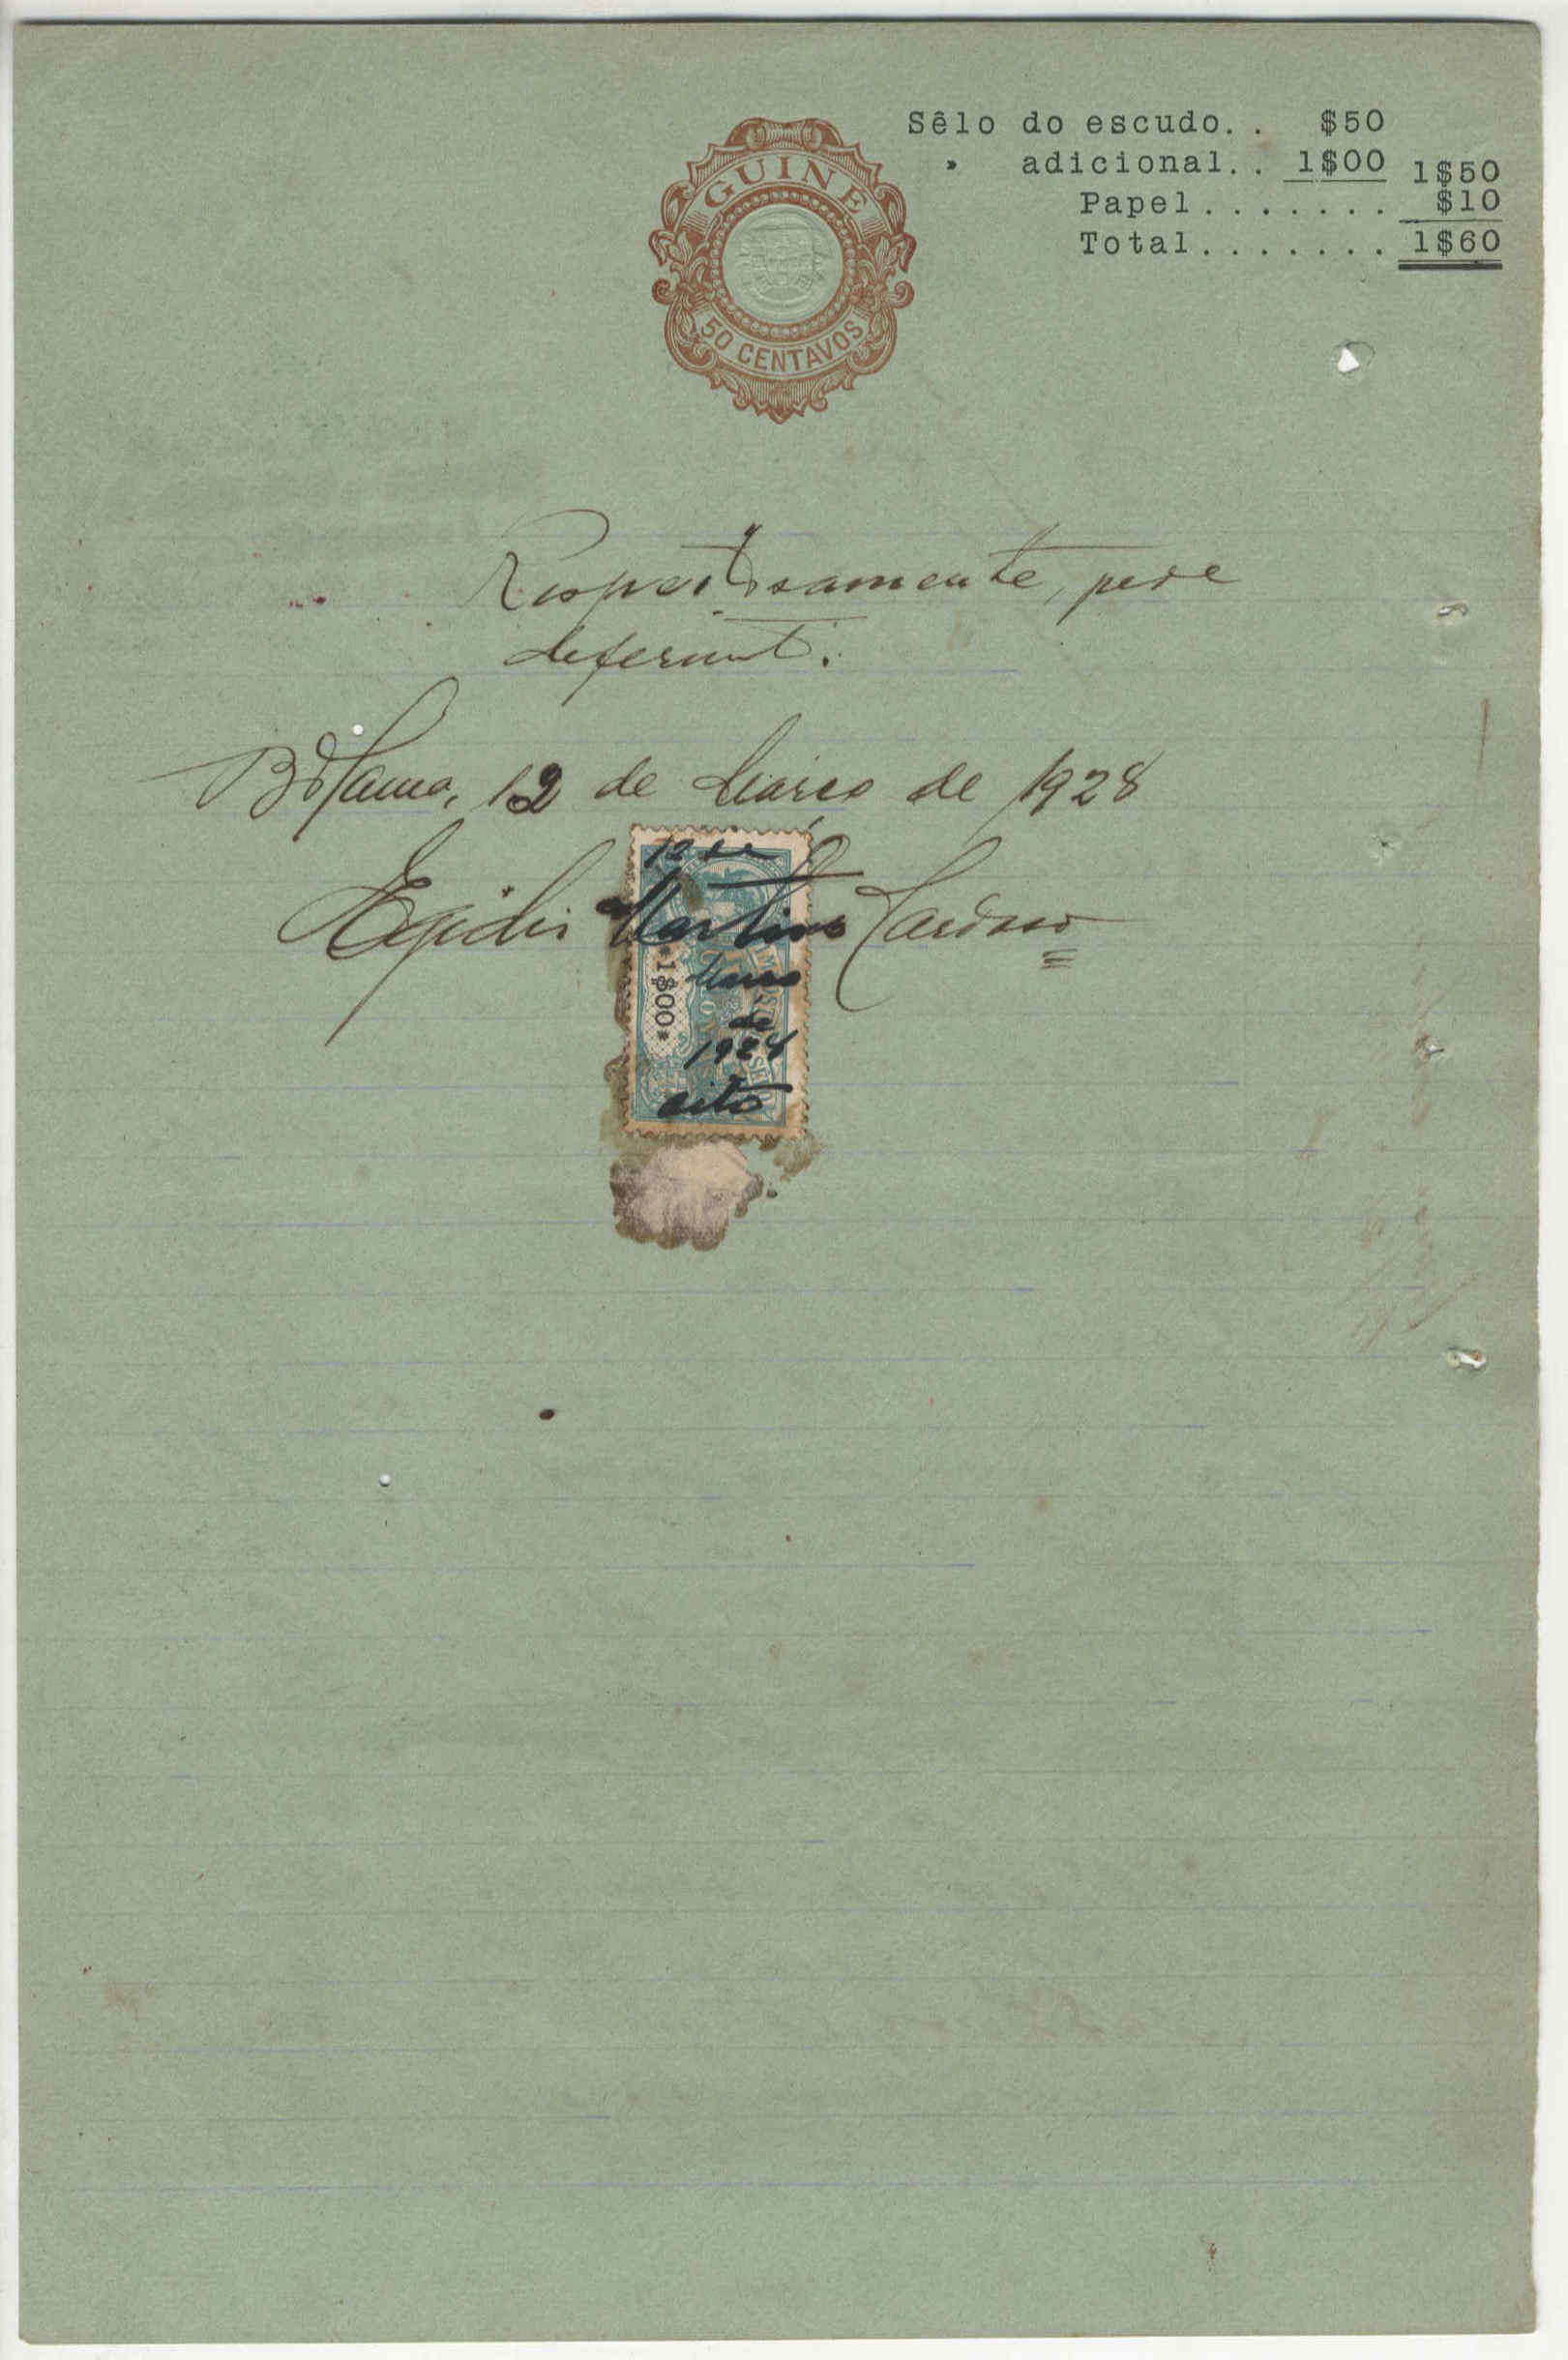 GUINÉ
50 CENTAVOS
Sêlo do escudo.. $50
» adicional.. 1$00 1$50
Papel....... $10
Total....... 1$60
Respeitosamente, pede
deferimt.
Bolama, 12 de Março de 1928
Egidio Martins Cardoso
12 de
Março
de
1928
oito
*1$00*